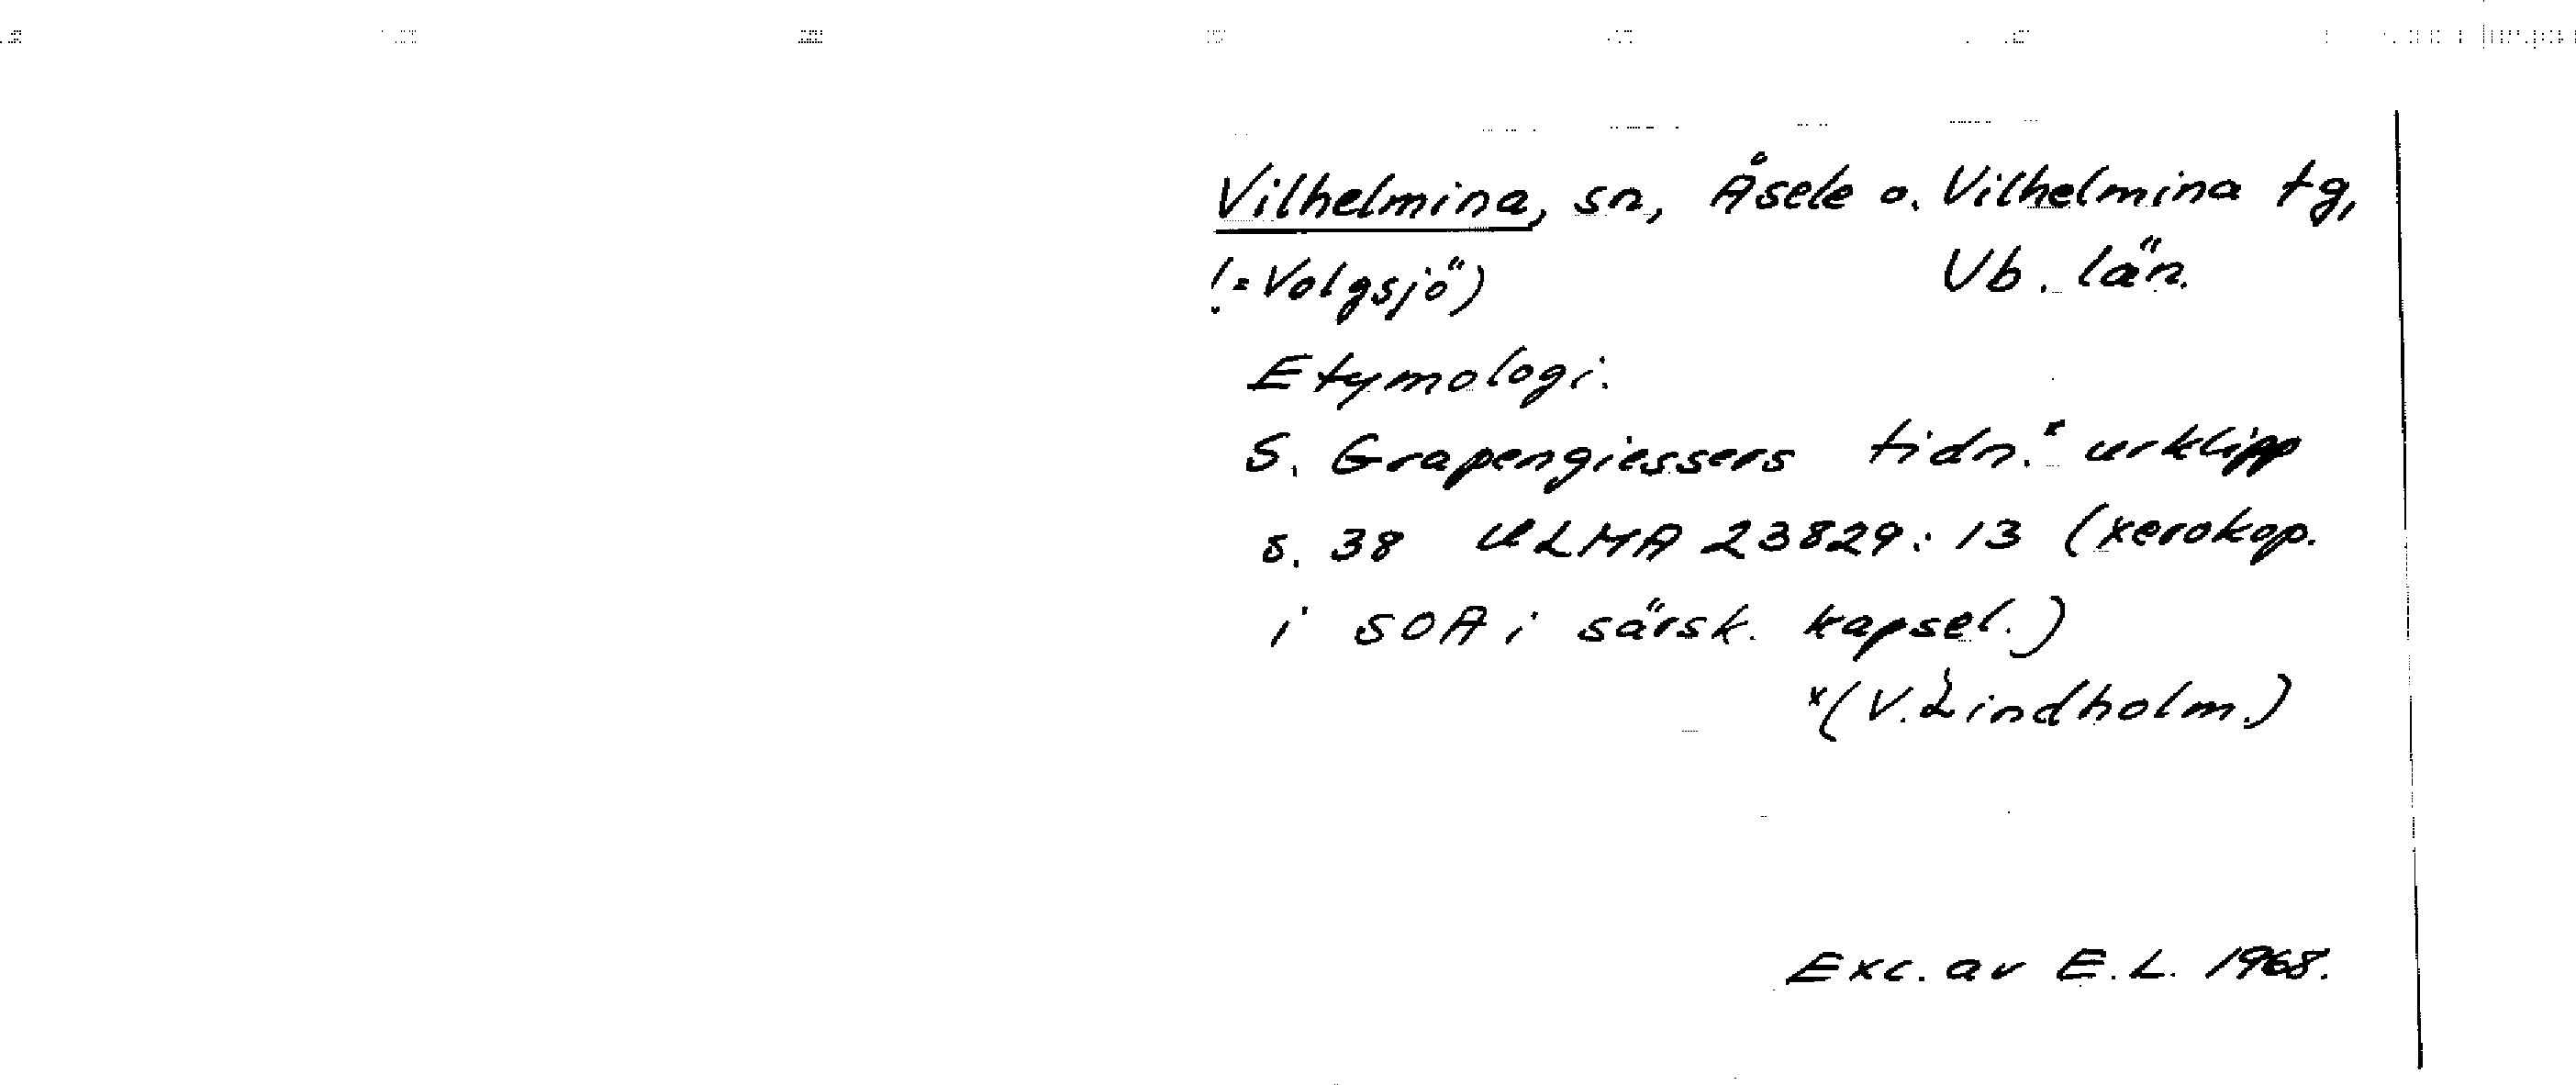 Vilhelmina, sn, Åsele o. Vilhelmina tg,
(=Volgsjö) Vb. län.
Etymologi.
S. Grapengiessers tidn.x urklipp
s. 38 ULMA 23829:13 (xerokop.
i SOA i särsk. kapsel.)
x(V. Lindholm.)
Exc. av E.L. 1968.